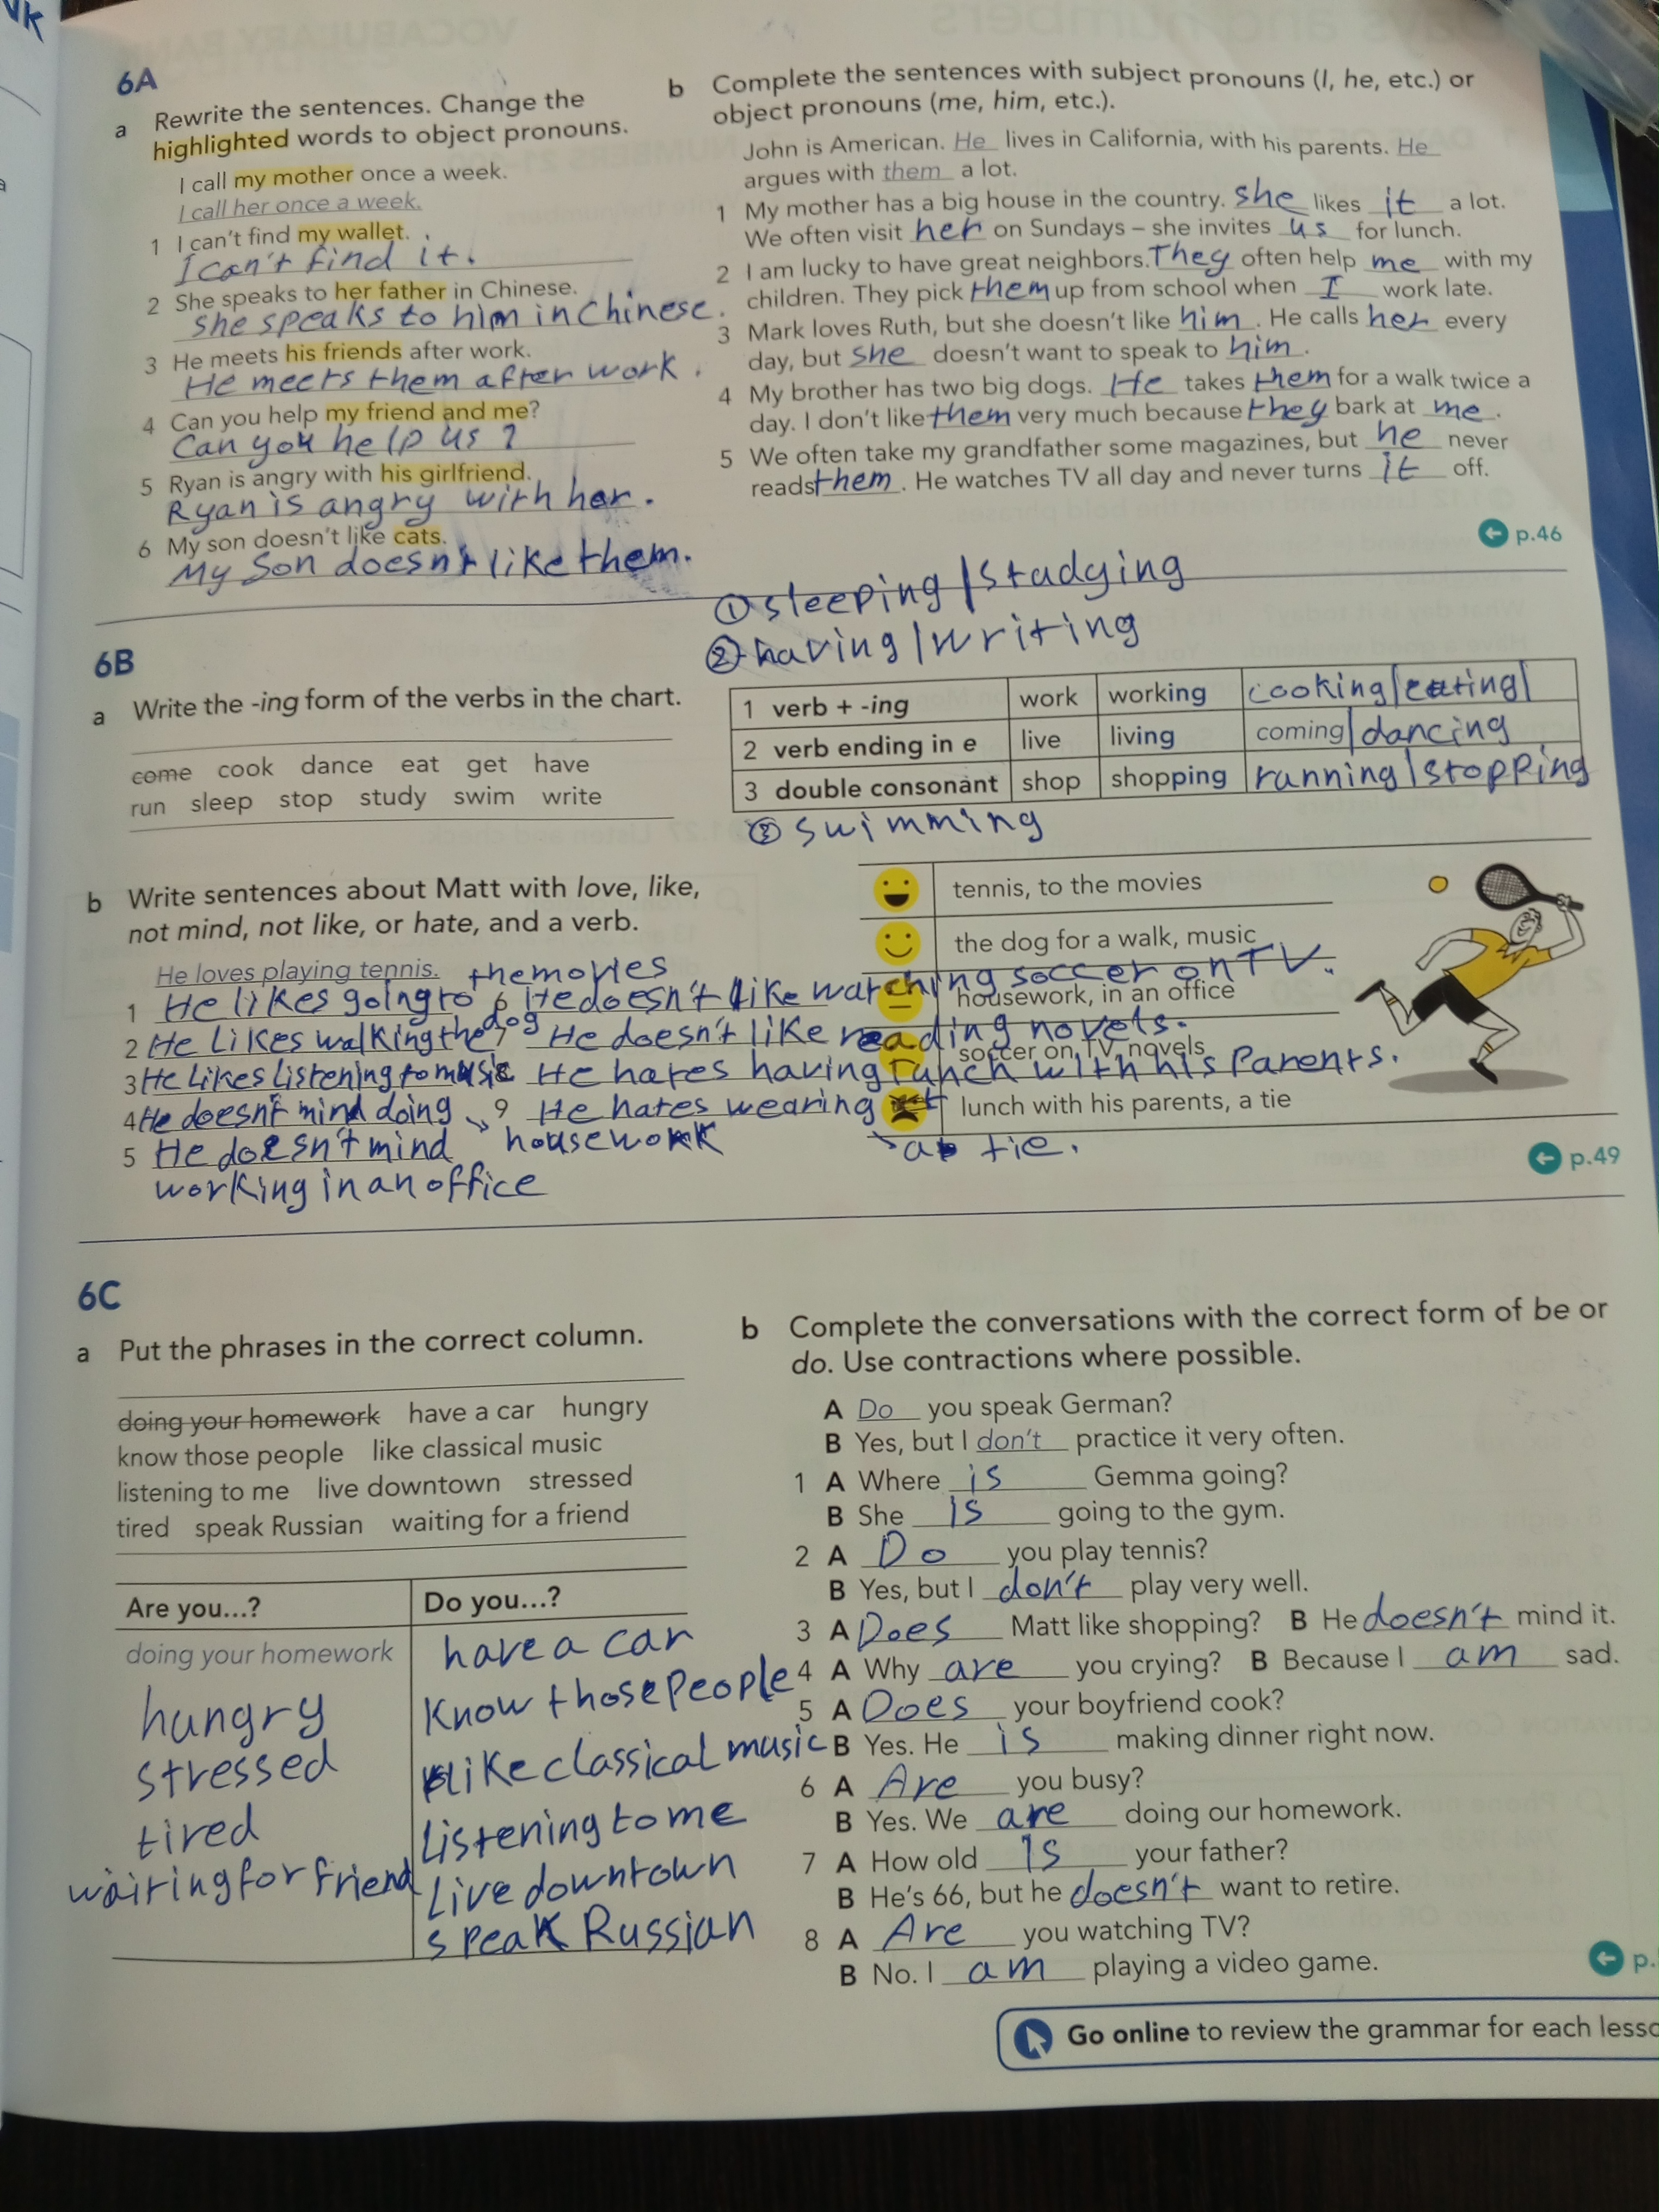 6A
a Rewrite the sentences. Change the
highlighted words to object pronouns.
I call my mother once a week.
I call her once a week.
1 I can't find my wallet.
I can't find it.
2 She speaks to her father in Chinese.
She speaks to him in Chinese.
3 He meets his friends after work.
He meets them after work.
4 Can you help my friend and me?
Can you help us?
5 Ryan is angry with his girlfriend.
Ryan is angry with her.
6 My son doesn't like cats.
My Son doesn't like them.
b Complete the sentences with subject pronouns (I, he, etc.) or
object pronouns (me, him, etc.).
John is American. He lives in California, with his parents. He
argues with them a lot.
1 My mother has a big house in the country. She likes it a lot.
We often visit her on Sundays – she invites us for lunch.
2 I am lucky to have great neighbors. They often help me with my
children. They pick them up from school when I work late.
3 Mark loves Ruth, but she doesn't like him. He calls her every
day, but she doesn't want to speak to him.
4 My brother has two big dogs. He takes them for a walk twice a
day. I don't like them very much because they bark at me.
5 We often take my grandfather some magazines, but he never
reads them. He watches TV all day and never turns it off.
p.46
① sleeping | studying
② having | writing
6B
a Write the -ing form of the verbs in the chart.
come cook dance eat get have
run sleep stop study swim write
1 verb + -ing work working cooking | eating |
2 verb ending in e live living coming | dancing
3 double consonant shop shopping running | stopping
③ swimming
b Write sentences about Matt with love, like,
not mind, not like, or hate, and a verb.
He loves playing tennis.
1 He likes going to the movies
2 He Likes walking the dog
3 He Likes listening to music
4 He doesn't mind doing housework
5 He doesn't mind
working in an office
6 He doesn't like watching soccer on TV.
7 He doesn't like reading novels.
8 He hates having lunch with his Parents.
9 He hates wearing
a tie.
tennis, to the movies
the dog for a walk, music
housework, in an office
soccer on TV, novels
lunch with his parents, a tie
p.49
6C
a Put the phrases in the correct column.
doing your homework have a car hungry
know those people like classical music
listening to me live downtown stressed
tired speak Russian waiting for a friend
Are you...? Do you...?
doing your homework have a car
hungry Know those people
stressed like classical music
tired Listening to me
waiting for friend Live downtown
speak Russian
b Complete the conversations with the correct form of be or
do. Use contractions where possible.
A Do you speak German?
B Yes, but I don't practice it very often.
1 A Where is Gemma going?
B She is going to the gym.
2 A Do you play tennis?
B Yes, but I don't play very well.
3 A Does Matt like shopping? B He doesn't mind it.
4 A Why are you crying? B Because I am sad.
5 A Does your boyfriend cook?
B Yes. He is making dinner right now.
6 A Are you busy?
B Yes. We are doing our homework.
7 A How old is your father?
B He's 66, but he doesn't want to retire.
8 A Are you watching TV?
B No. I am playing a video game.
p.
Go online to review the grammar for each